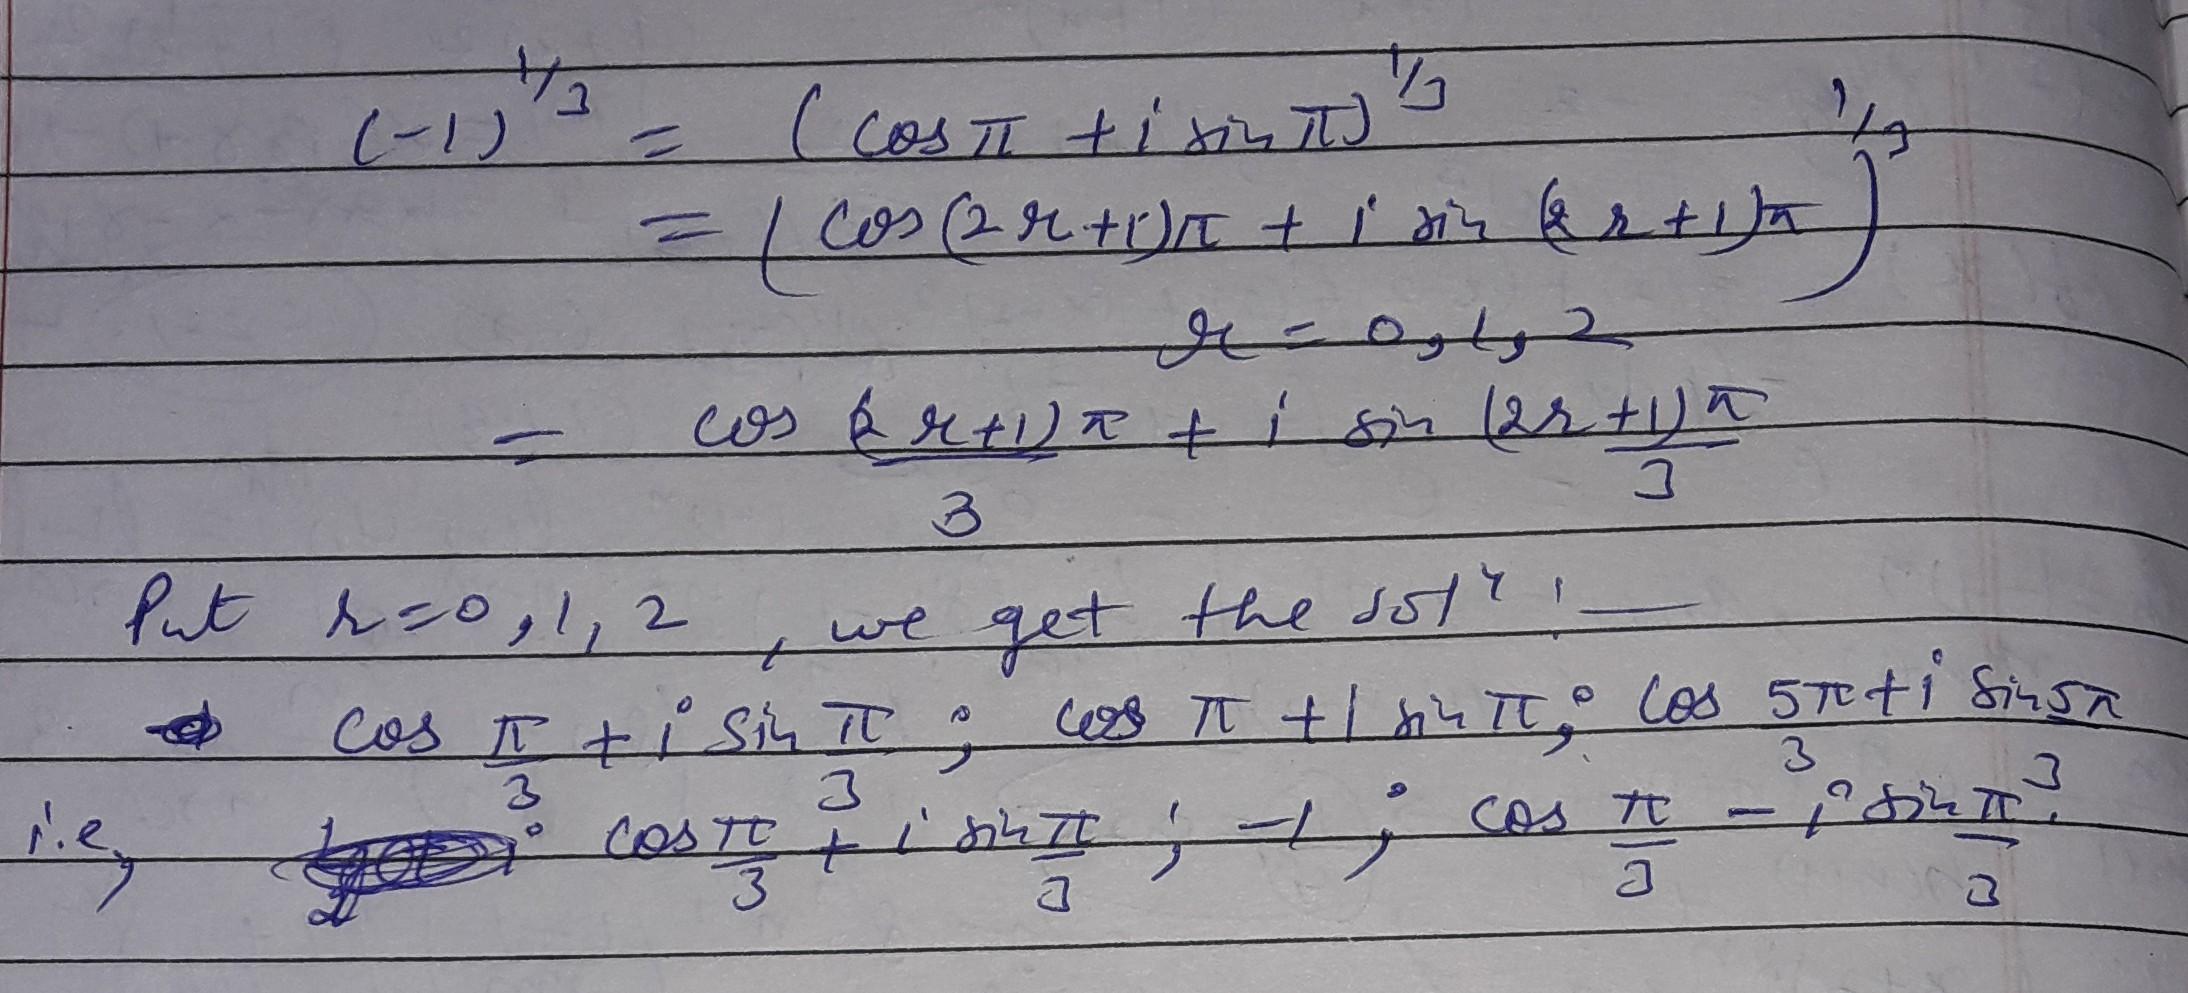 (-1)^{1/3} = (cos π + i sin π)^{1/3}
= (cos (2r+1)π + i sin (2r+1)π)^{1/3}
r = 0, 1, 2
= cos (2r+1)π/3 + i sin (2r+1)π/3
Put r=0, 1, 2, we get the solⁿ :—
cos π/3 + i sin π/3 ; cos π + i sin π ; cos 5π/3 + i sin 5π/3
i.e, cos π/3 + i sin π/3 ; -1 ; cos π/3 - i sin π/3.